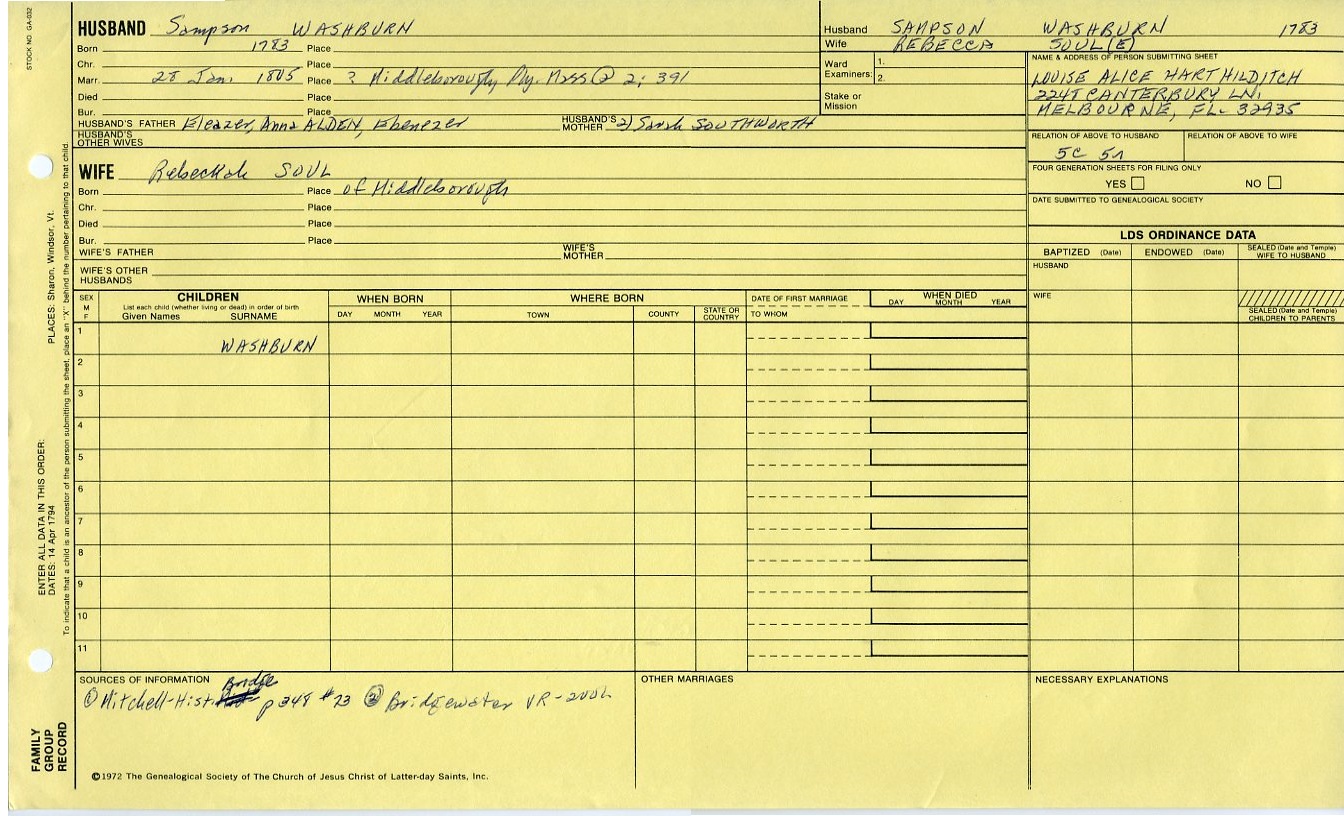 STOCK NO. GA-032
HUSBAND Sampson WASHBURN
Born 1783 Place
Chr. Place
Marr. 28 Jan. 1805 Place ? Middleborough, Ply. Mass ② 2; 391
Died Place
Bur. Place
HUSBAND'S FATHER Eleazer, Anna ALDEN, Ebenezer HUSBAND'S MOTHER 2) Sarah SOUTHWORTH
HUSBAND'S OTHER WIVES
Husband SAMPSON WASHBURN 1783
Wife REBECCA SOUL(E)
Ward Examiners: 1.
2.
Stake or Mission
NAME & ADDRESS OF PERSON SUBMITTING SHEET
LOUISE ALICE HART HILDITCH
2245 CANTERBURY LN.
MELBOURNE, FL- 32935
RELATION OF ABOVE TO HUSBAND RELATION OF ABOVE TO WIFE
5C 5r
FOUR GENERATION SHEETS FOR FILING ONLY
YES NO
DATE SUBMITTED TO GENEALOGICAL SOCIETY
WIFE Rebeckah SOUL
Born Place of Middleborough
Chr. Place
Died Place
Bur. Place
WIFE'S FATHER WIFE'S MOTHER
WIFE'S OTHER HUSBANDS
LDS ORDINANCE DATA
BAPTIZED (Date) ENDOWED (Date) SEALED (Date and Temple) WIFE TO HUSBAND
HUSBAND
WIFE
SEALED (Date and Temple) CHILDREN TO PARENTS
SEX M F
CHILDREN
List each child (whether living or dead) in order of birth
Given Names SURNAME
WHEN BORN
DAY MONTH YEAR
WHERE BORN
TOWN COUNTY STATE OR COUNTRY
DATE OF FIRST MARRIAGE
TO WHOM
WHEN DIED
DAY MONTH YEAR
1 WASHBURN
2
3
4
5
6
7
8
9
10
11
PLACES: Sharon, Windsor, Vt.
ENTER ALL DATA IN THIS ORDER:
DATES: 14 Apr 1794
To indicate that a child is an ancestor of the person submitting the sheet, place an "X" behind the number pertaining to that child.
FAMILY GROUP RECORD
SOURCES OF INFORMATION
① Mitchell-Hist. Bridge p 348 #23 ② Bridgewater VR-2vol
OTHER MARRIAGES
NECESSARY EXPLANATIONS
©1972 The Genealogical Society of The Church of Jesus Christ of Latter-day Saints, Inc.